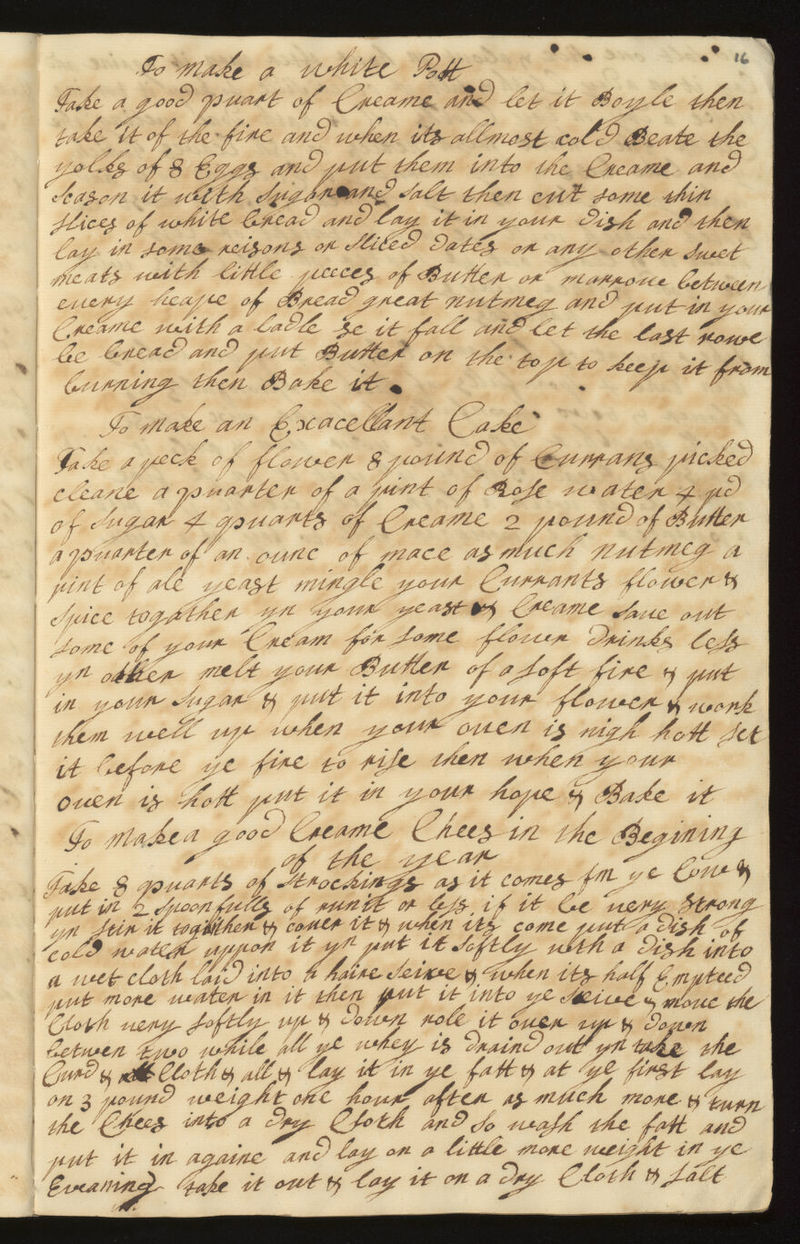 16
To make a white Pott
Take a good quart of Creame and let it Boyle then
take it of the fire and when its allmost cold Beate the
yolks of 8 Eggs and put them into the Creame and
season it with sugar and salt then cut some thin
slices of white bread and lay it in your dish and then
lay in some reisons or sliced dates or any other swet
meats with little peeces of Butter or marrow between
every heape of Bread great nutmeg and put in your
Creame with a ladle se it fall and let the last rowe
be bread and put Butter on the top to keep it from
burning then Bake it
To make an Exacellant Cake
Take a peck of flower 8 pound of Currans picked
cleane a quarter of a pint of Rose water 4 pd
of sugar 4 quarts of Creame 2 pound of Butter
a quarter of an ounc of mace as much nutmeg a
pint of ale yeast mingle your Currants flower &
spice togather yn your yeast & Creame save out
some of your Cream for some flower drinks less
yn other melt your Butter of a soft fire & put
in your sugar & put it into your flower & work
them well up when your oven is nigh hott set
it before ye fire to rise then when your
oven is hott put it in your hope & Bake it
To make a good Creame Chees in the Begining
of the year
Take 8 quarts of Strockings as it comes fm ye Cow &
put in 2 spoonfulls of runit or less if it be very strong
yn stir it togather & cover it & when its come put a dish of
cold water uppon it yn put it softly wth a dish into
a wet cloth laid into a haire seive & when its half Empteed
put more water in it then put it into ye seive & move the
Cloth very softly up & down role it over up & down
betwen two while all ye whey is draind out yn take the
Curd & Cloth & all & lay it in ye fatt & at ye first lay
on 3 pound weight one hour after as much more & turn
the Chees into a dry Cloth and so wash the fatt and
put it in againe and lay on a little more weight in ye
Evaning take it out & lay it on a dry Cloth & salt